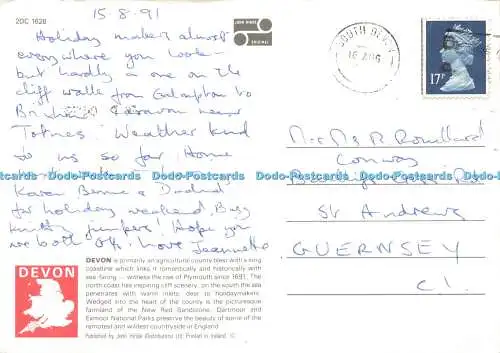 2DC 1628
15.8.91
Holiday makers almost
everywhere you look -
but hardly a one on the
cliff walk from Galmpton to
Brixham. Caravan near
Totnes. Weather kind
to us so far. Home
Karen Bernie & David
for holiday weekend. Busy
knitting jumpers! Hope you
are both O.K. Love Jeannette
SOUTH DEVON
16 AUG
17P
Mr & Mrs R. Rouillard
Conway
St Andrews
GUERNSEY
C.I.
Dodo-Postcards Dodo-Postcards Dodo-Postcards Dodo-Postcards
DEVON
DEVON is primarily an agricultural county blest with a long
coastline which links it romantically and historically with
sea-faring - witness the rise of Plymouth since 1691. The
north coast has inspiring cliff scenery, on the south the sea
penetrates with warm inlets, dear to holidaymakers.
Wedged into the heart of the county is the picturesque
farmland of the New Red Sandstone. Dartmoor and
Exmoor National Parks preserve the beauty of some of the
remotest and wildest countryside in England
Published by John Hinde (Distributors) Ltd. Printed in Ireland. ©